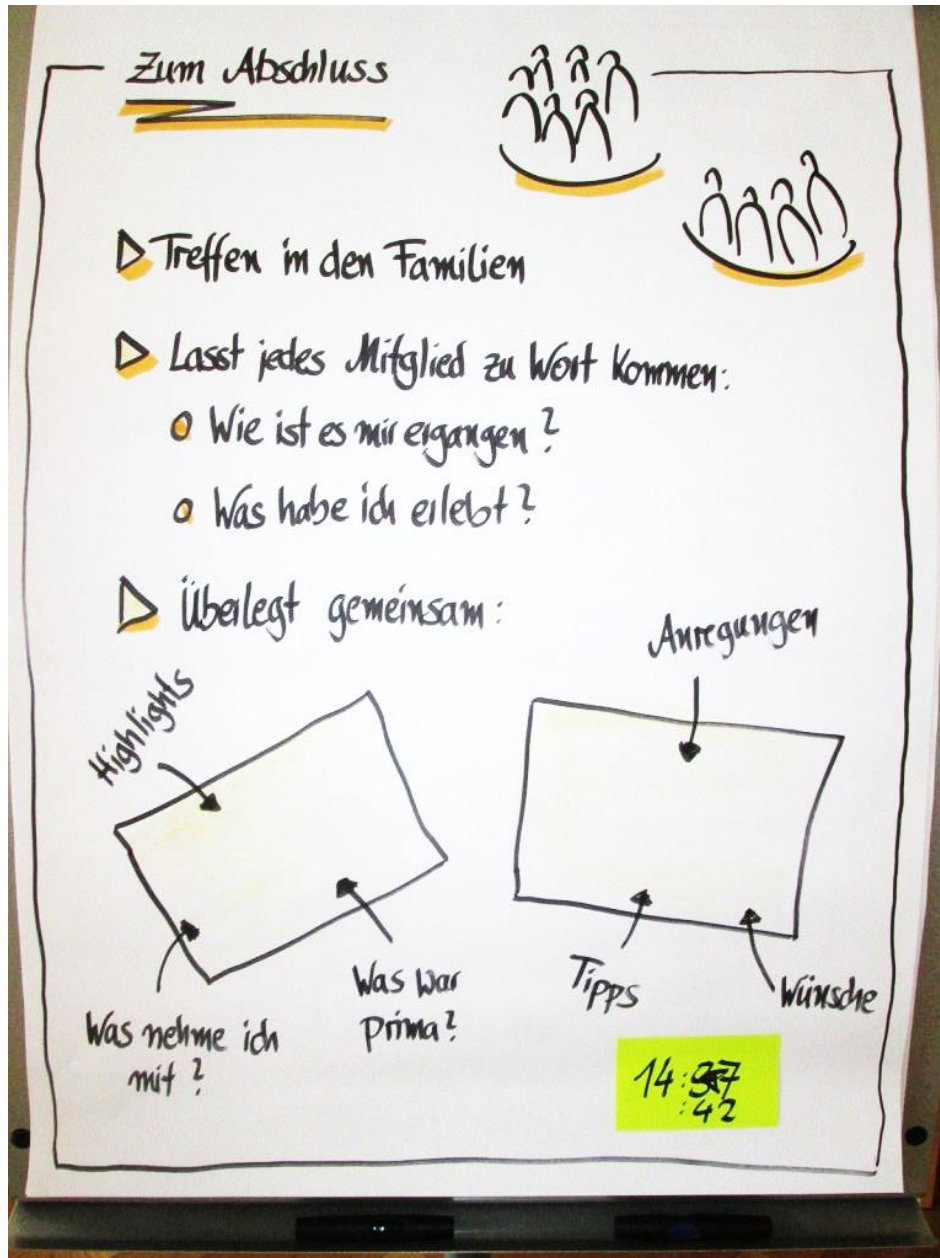 Zum Abschluss
Treffen in den Familien
Lasst jedes Mitglied zu Wort kommen:
Wie ist es mir ergangen?
Was habe ich erlebt?
Überlegt gemeinsam:
Highlights
Was nehme ich
mit?
Was war
prima?
Anregungen
Tipps
Wünsche
14:
:42